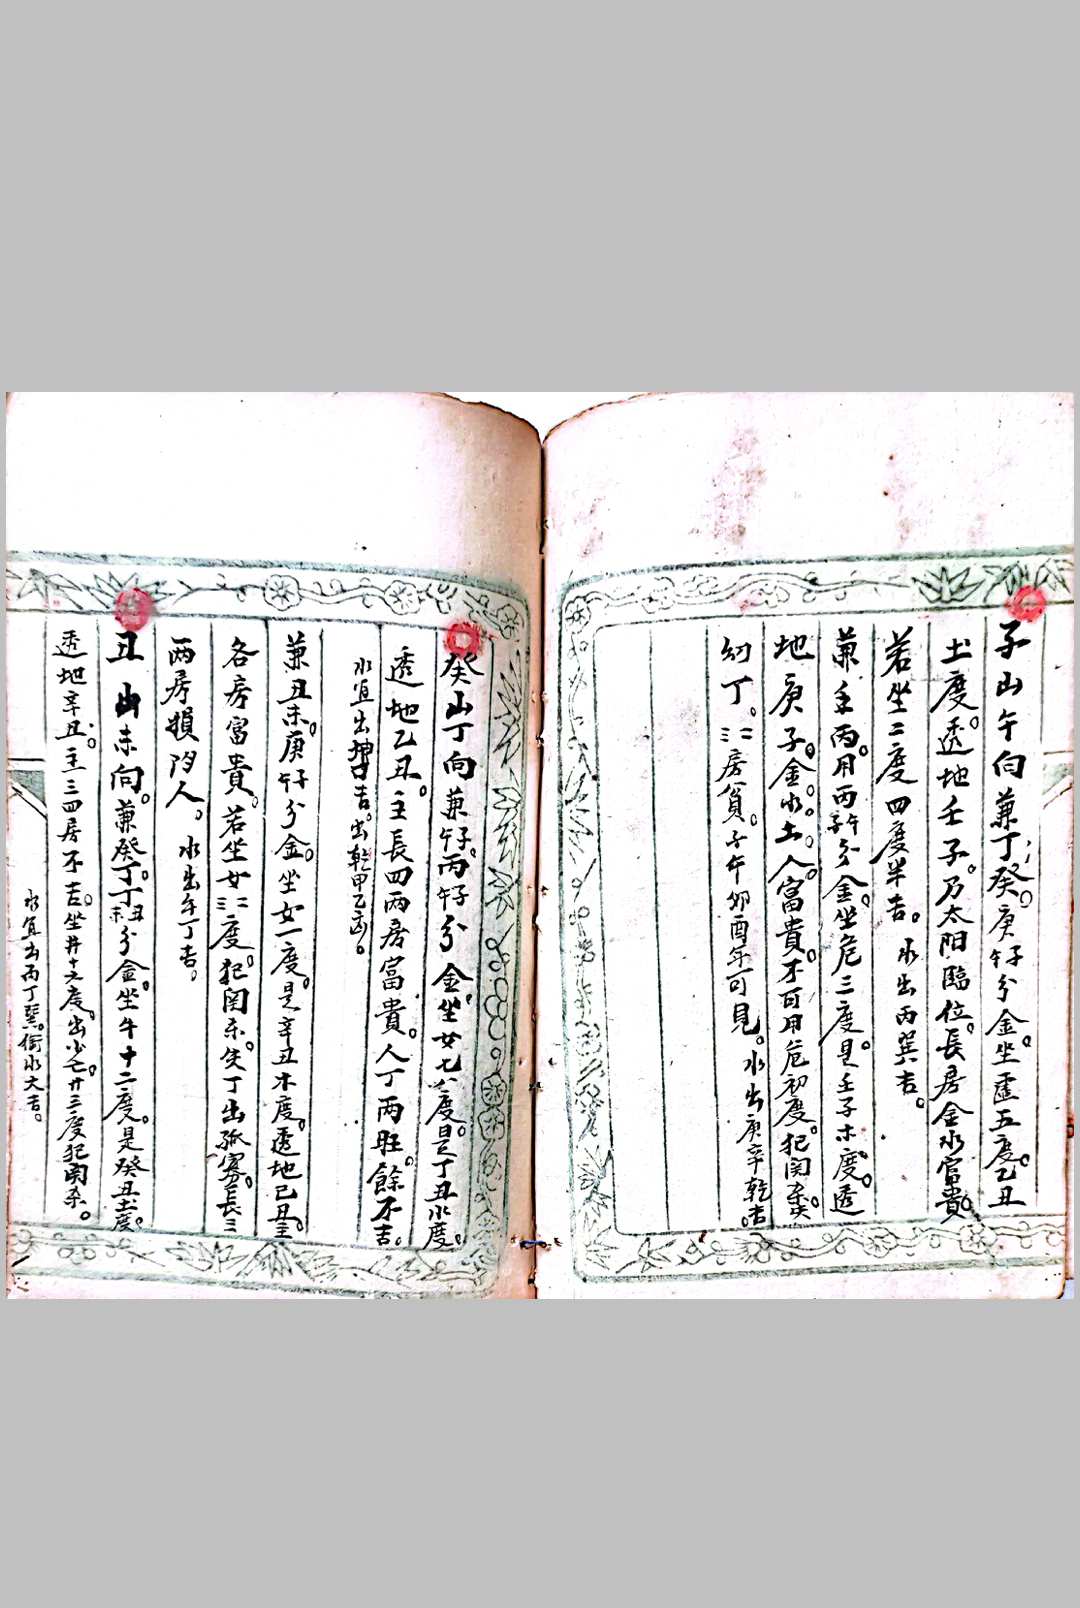 子山午向兼丁癸。庚子午分金。坐虛五度。乙丑
土度。透地壬子。乃太阳臨位。長房金水富貴。
若坐二度四度半吉。水出丙巽吉。
兼壬丙。用丙子午分金。坐危三度。是壬子木度。透
地庚子。金。水。土。人。富貴。才可用危初度。犯関柔。
幼丁。三二房貧。子午卯酉年可見。水出庚辛乾吉。
癸山丁向兼子午。丙子午分金。坐女七八度。是丁丑水度。
透地乙丑。主長四两房富貴。人丁两旺。餘不吉。
水宜出坤吉。出乾甲乙凶。
兼丑未。庚子午分金。坐女一度。是辛丑木度。透地己丑。主
各房富貴。若坐女三二度。犯関柔失丁出孤寡。長三
两房損陷人。水出午丁吉。
丑山未向。兼癸丁。丁丑未分金。坐牛十二度。是癸丑土度。
透地辛丑。主三四房不吉。坐井十六度。出少亡。廿三度犯関柔。
水宜出丙丁巽。衙水大吉。